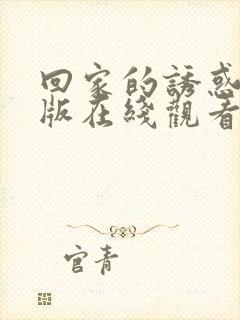 回家的誘惑
版在綫觀看
官青